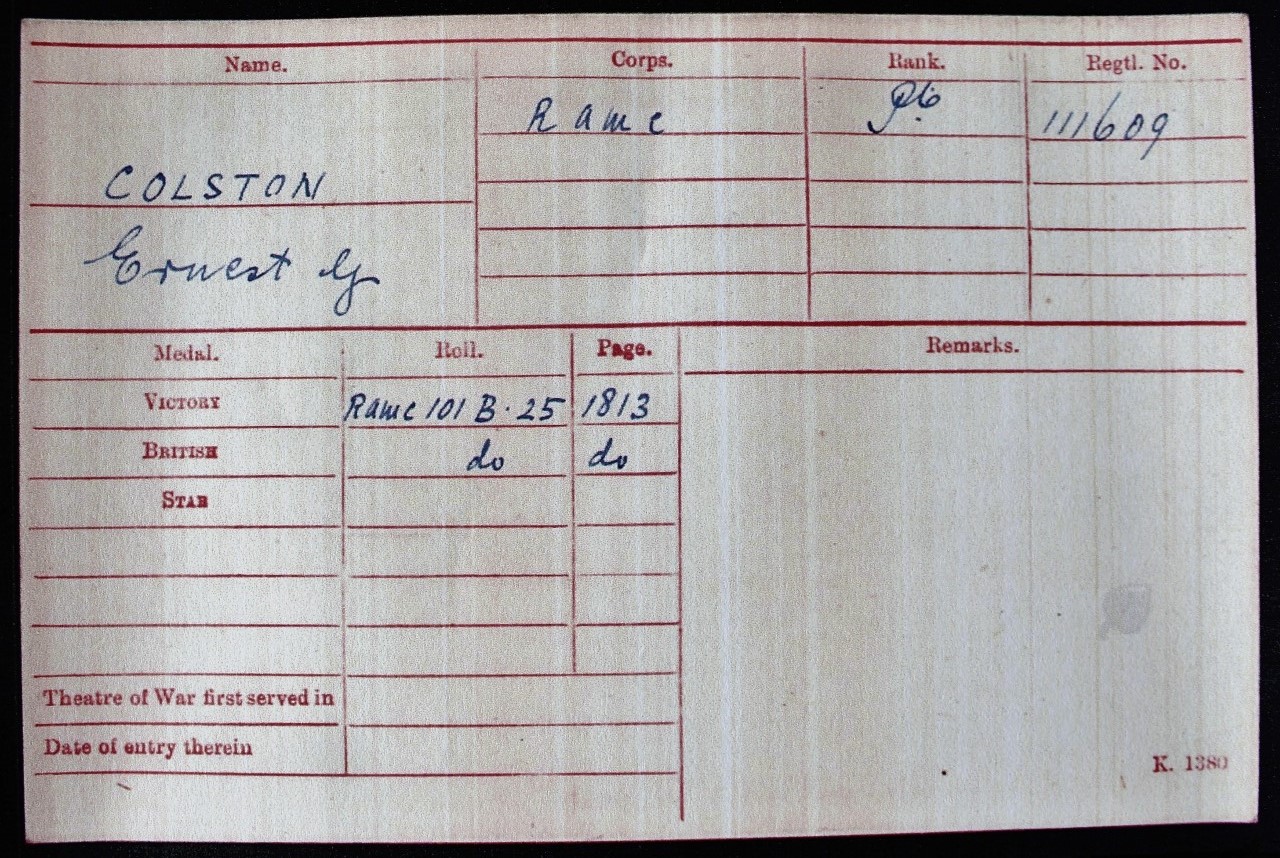 Name. Corps. Rank. Regtl. No.
R a m c Pte 111609
COLSTON
Ernest G
Medal. Roll. Page. Remarks.
VICTORY Ramc 101 B. 25 1813
BRITISH do do
STAR
Theatre of War first served in
Date of entry therein
K. 1380